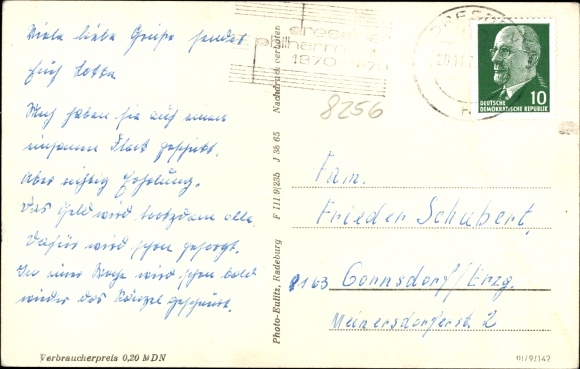 Viele liebe Grüße sendet
Euch Lotte
Mich haben sie auf einen
einsamen Fleck geschickt.
Aber richtig Erholung.
Das Geld wird trotzdem alle.
Dafür wird schon gesorgt.
In einer Woche wird schon bald
wieder das Ränzel geschnürt.
Verbraucherpreis 0,20 MDN
Photo-Eulitz, Radeburg F III 9/235 J 38 65 Nachdruck verboten
dresdner
philharmonie
1870 1970
DRESDEN
8256
DEUTSCHE
DEMOKRATISCHE REPUBLIK
10
Fam.
Frieder Schubert,
8163 Gonnsdorf/Erzg.
Meinersdorferstr. 2
III/9/142